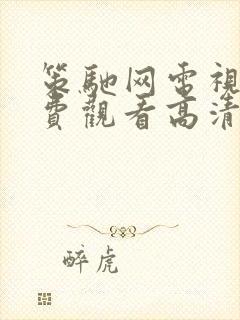 策馳网電視
費觀看高清
醉虎